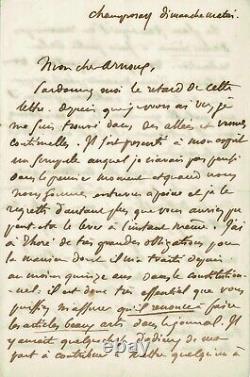 champrosay dimanche matin.
Mon cher Arnoux,
Pardonnez moi le retard de cette
lettre. Depuis que je vous ai vu, je
me suis trouvé dans des allées et venues
continuelles. Il s'est présenté à mon esprit
un scrupule auquel je n'avais pas pensé
dans le premier moment et quand nous
nous sommes entrevus à peine et je le
regrette d'autant plus que vous auriez pu
peut-être le lever à l'instant même. J'ai
à Thoré de très grandes obligations pour
la manière dont il m'a traité depuis
au moins quinze ans dans le constitution-
nel. il est donc très essentiel que vous
puissiez m'assurer qu'il renonce à faire
les articles beaux arts dans le journal. Il
y aurait quelque chose d'odieux de ma
part à contribuer à mettre quelqu'un à